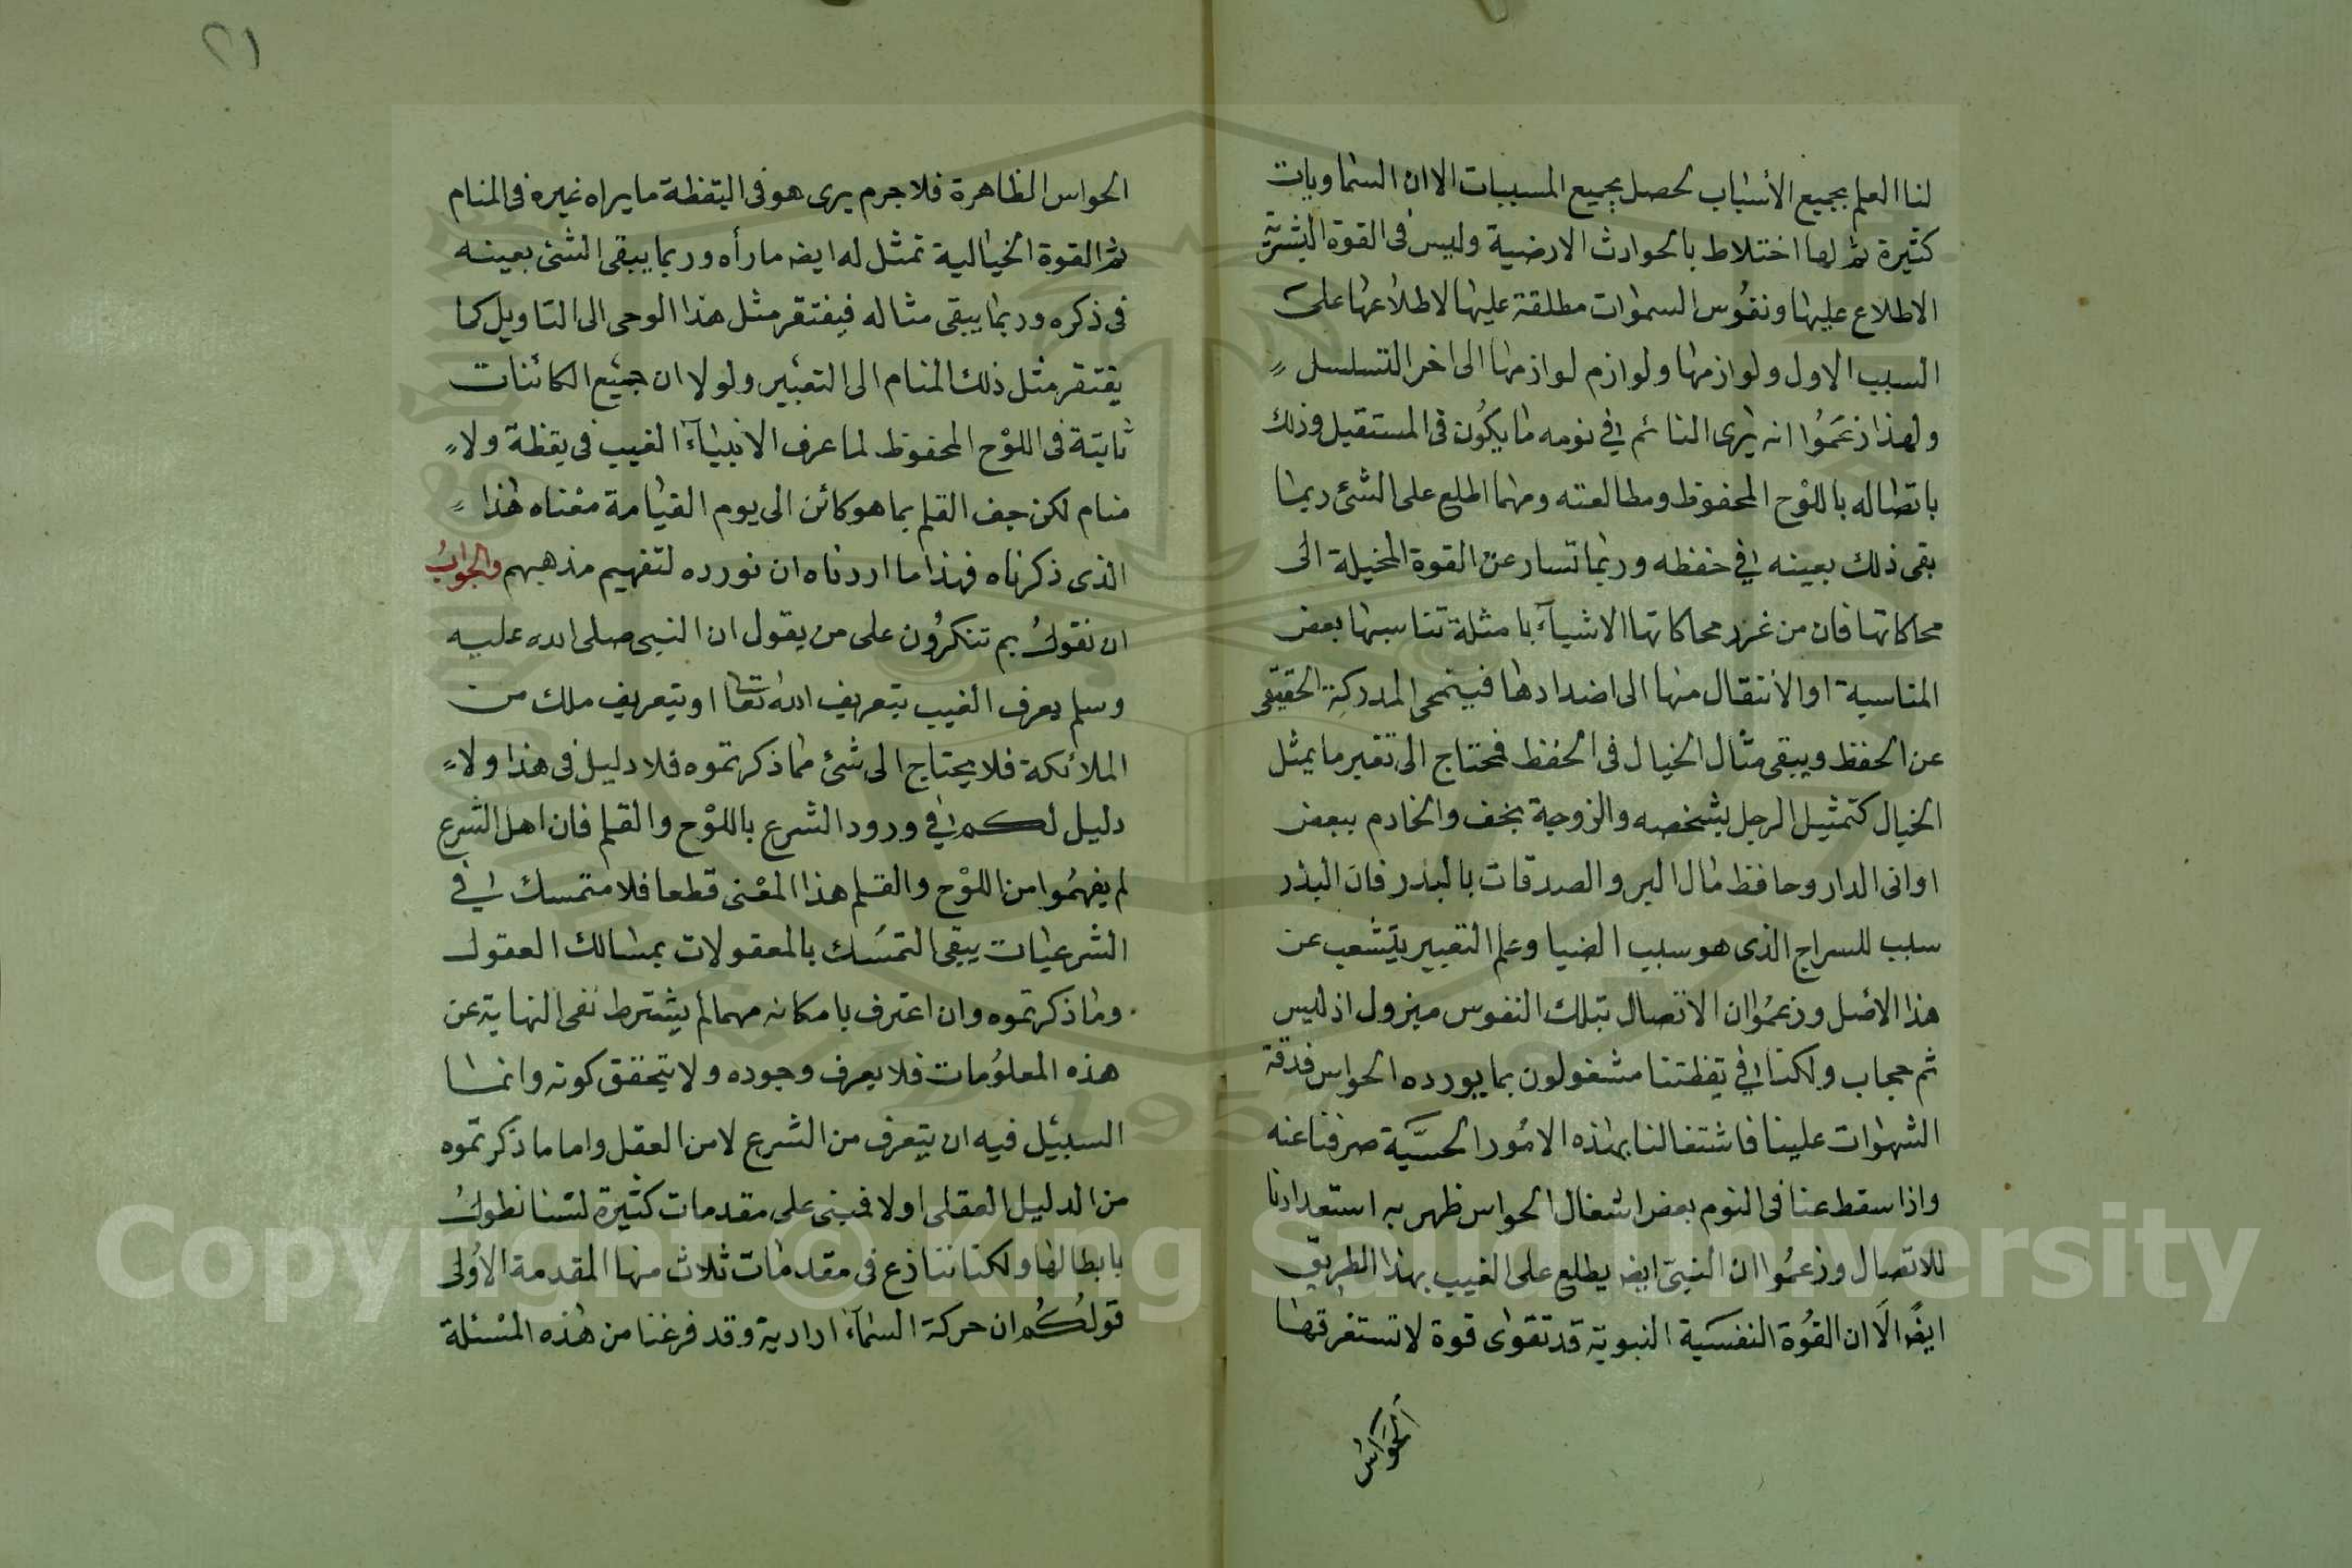 لنا العلم بجميع الأسباب لحصل بجميع المسببات الا ان السماويات
كثيرة ثم لها اختلاط بالحوادث الارضية وليس فى القوة البشرية
الاطلاع عليها ونفوس السموات مطلقة عليها لاطلاعها على
السبب الاول ولوازمها ولوازم لوازمها الى اخر التسلسل
ولهذا زعموا انه يرى النائم في نومه ما يكون فى المستقبل وذلك
باتصاله باللوح المحفوظ ومطالعته ومهما اطلع على الشئ ربما
بقى ذلك بعينه في حفظه وربما تسارعن القوة المخيلة الى
محاكاتها فان من غرر محاكاتها الاشيآء بامثلة تناسبها بعض
المناسبة او الانتقال منها الى اضدادها فينمحى المدركة الحقيقى
عن الحفظ ويبقى مثال الخيال فى الحفظ فيحتاج الى تعبير ما يمثل
الخيال كتمثيل الرجل بشخصه والزوجة بخف والخادم ببعض
اوانى الدار وحافظ مال البر والصدقات بالبذر فان البذر
سبب للسراج الذى هو سبب الضيا وعلم التعبير يتشعب عن
هذا الاصل وزعموا ان الاتصال بتلك النفوس مبزول اذ ليس
ثم حجاب ولكنا في يقظتنا مشغولون بما يورده الحواس فدقة
الشهوات علينا فاشتغالنا بهذه الامور الحسّية صرفنا عنه
واذا سقط عنا فى النوم بعض اشغال الحواس ظهر به استعدادنا
للاتصال وزعموا ان النبىّ ايضه يطلع على الغيب بهذا الطريق
ايضًا الّا ان القوة النفسية النبوية قد تقوى قوة لا تستغرقها
الحواس
٢١
الحواس الظاهرة فلا جرم يرى هو فى اليقظة ما يراه غيره فى المنام
ثم القوة الخيالية تمثل له ايضه ما رأه وربما يبقى الشئ بعينه
فى ذكره وربما يبقى مثاله فيفتقر مثل هذا الوحى الى التاويل كما
يفتقر مثل ذلك المنام الى التعبير ولولا ان جميع الكائنات
ثابتة فى اللوح المحفوظ لما عرف الانبيآء الغيب فى يقظة ولا
منام لكن جف القلم بما هو كائن الى يوم القيامة معناه هذا
الذى ذكرناه فهذا ما اردناه ان نورده لتفهيم مذهبهم والجوابُ
ان نقول بم تنكرون على من يقول ان النبى صلى الله عليه
وسلم يعرف الغيب بتعريف الله تعا او بتعريف ملك من
الملائكة فلا يحتاج الى شئ مما ذكرتموه فلا دليل فى هذا ولا
دليل لكم في ورود الشرع باللوح والقلم فان اهل الشرع
لم يفهموا من اللوح والقلم هذا المعنى قطعا فلا متمسك في
الشرعيات يبقى التمسك بالمعقولات بمسالك العقول
وما ذكرتموه وان اعترف بامكانه مهما لم يشترط نفى النهاية عن
هذه المعلومات فلا يعرف وجوده ولا يتحقق كونه وانما
السبيل فيه ان يتعرف من الشرع لا من العقل واما ما ذكرتموه
من الدليل العقلى اولا فمبنى على مقدمات كثيرة لسنا نطول
بابطالها ولكنا ننازع فى مقدمات ثلاث منها المقدمة الاولى
قولكم ان حركة السمآء ارادية وقد فرغنا من هذه المسئلة
Copyright © King Saud University